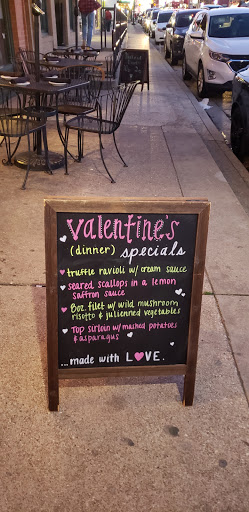 valentine's
(dinner) specials
truffle ravioli w/ cream sauce
seared scallops in a lemon
saffron sauce
8oz. filet w/ wild mushroom
risotto & julienned vegetables
Top sirloin w/ mashed potatoes
& asparagus
made with LOVE.